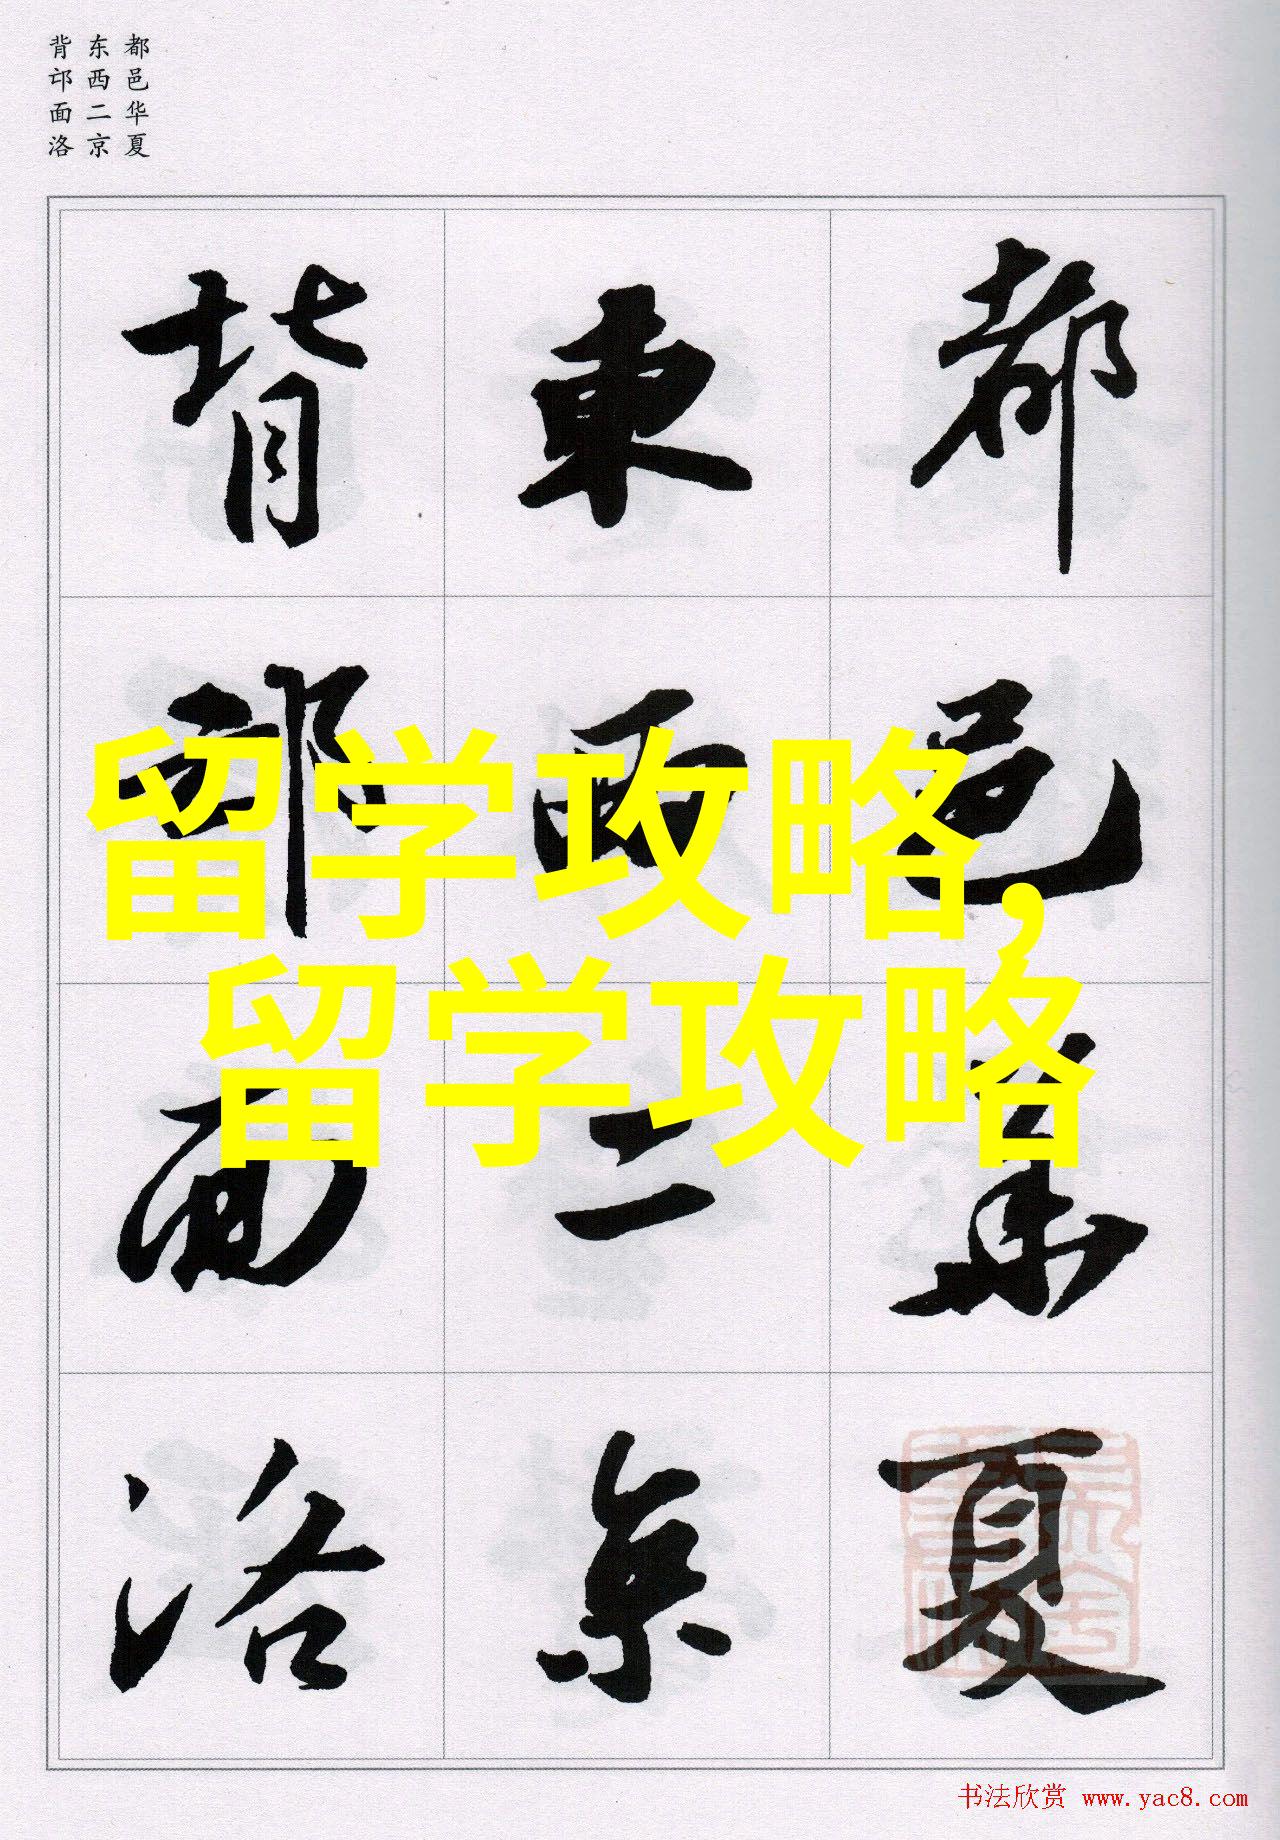 都邑华夏
东西二京
背邙面洛
都邑華夏
東西二京
背邙面洛
留学攻略,
留学攻略
书法欣赏 www.yac8.com